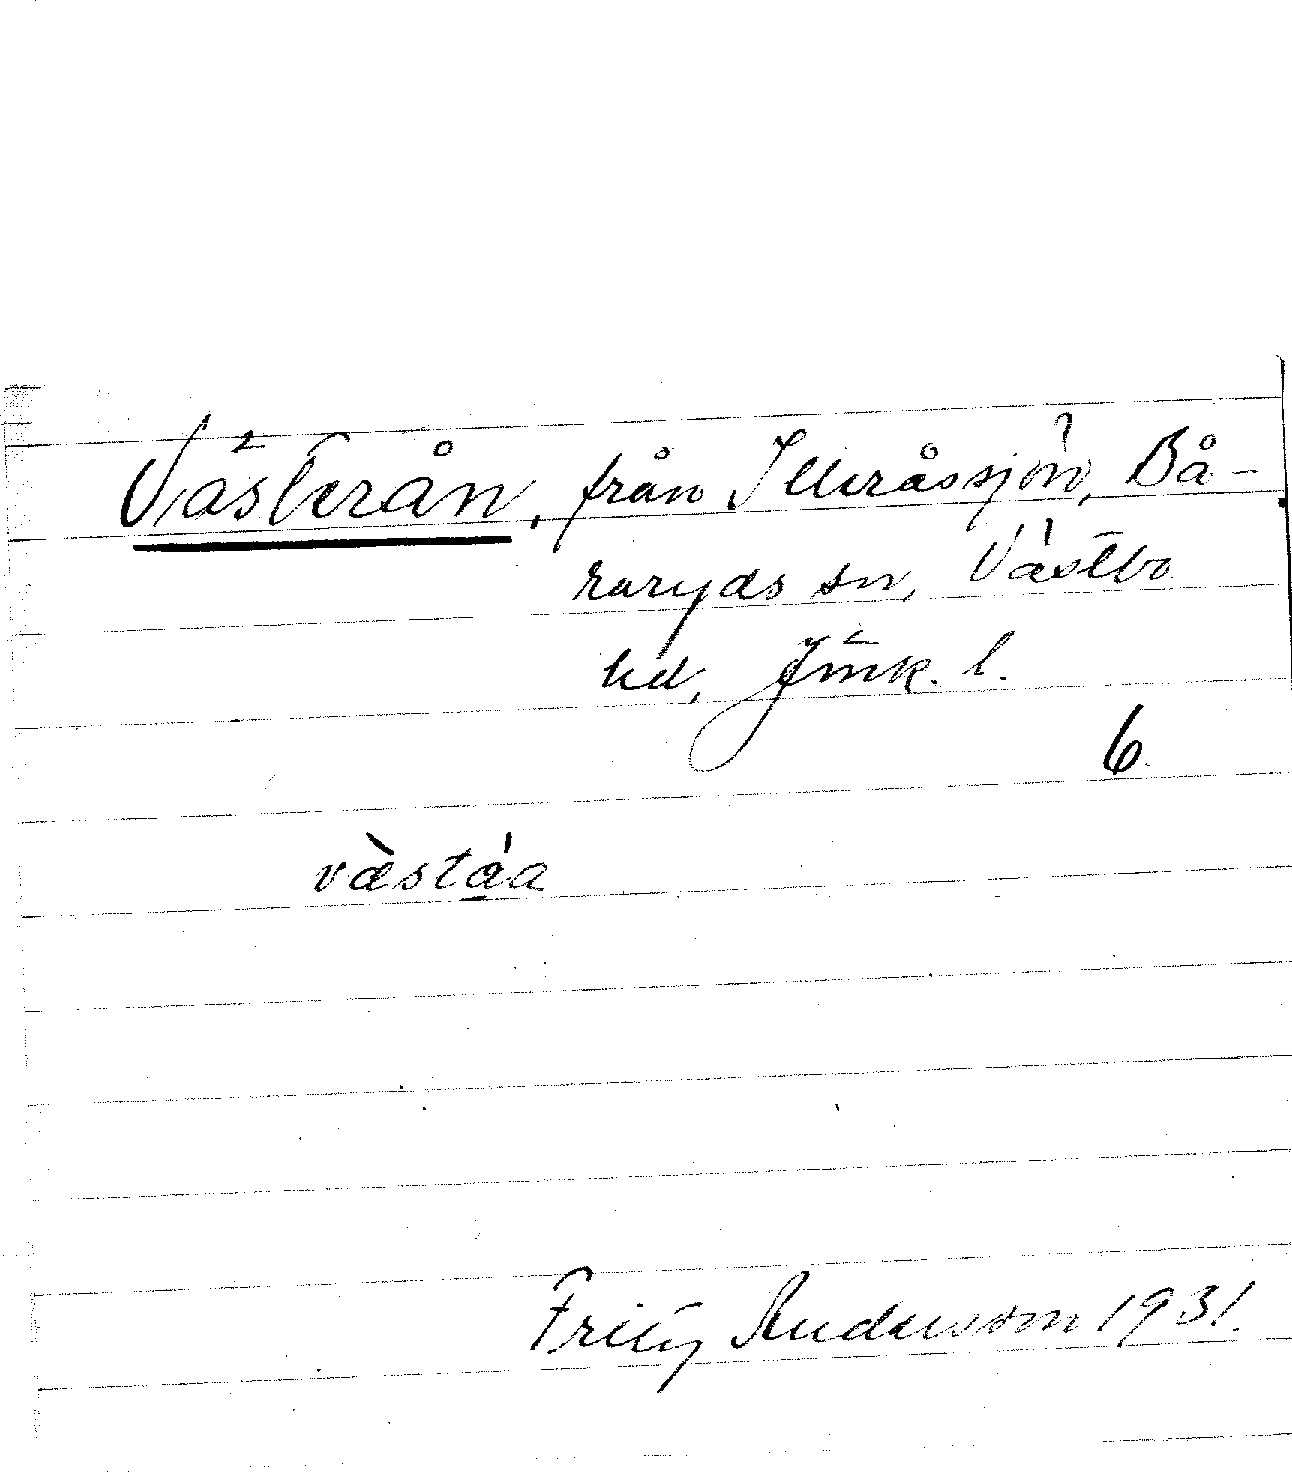 Västerån, från Illeråssjön, Bå-
raryds sn, Västbo
hd, Jönk. l.
6
væ̀stáa
Fritz Andersson 1931.